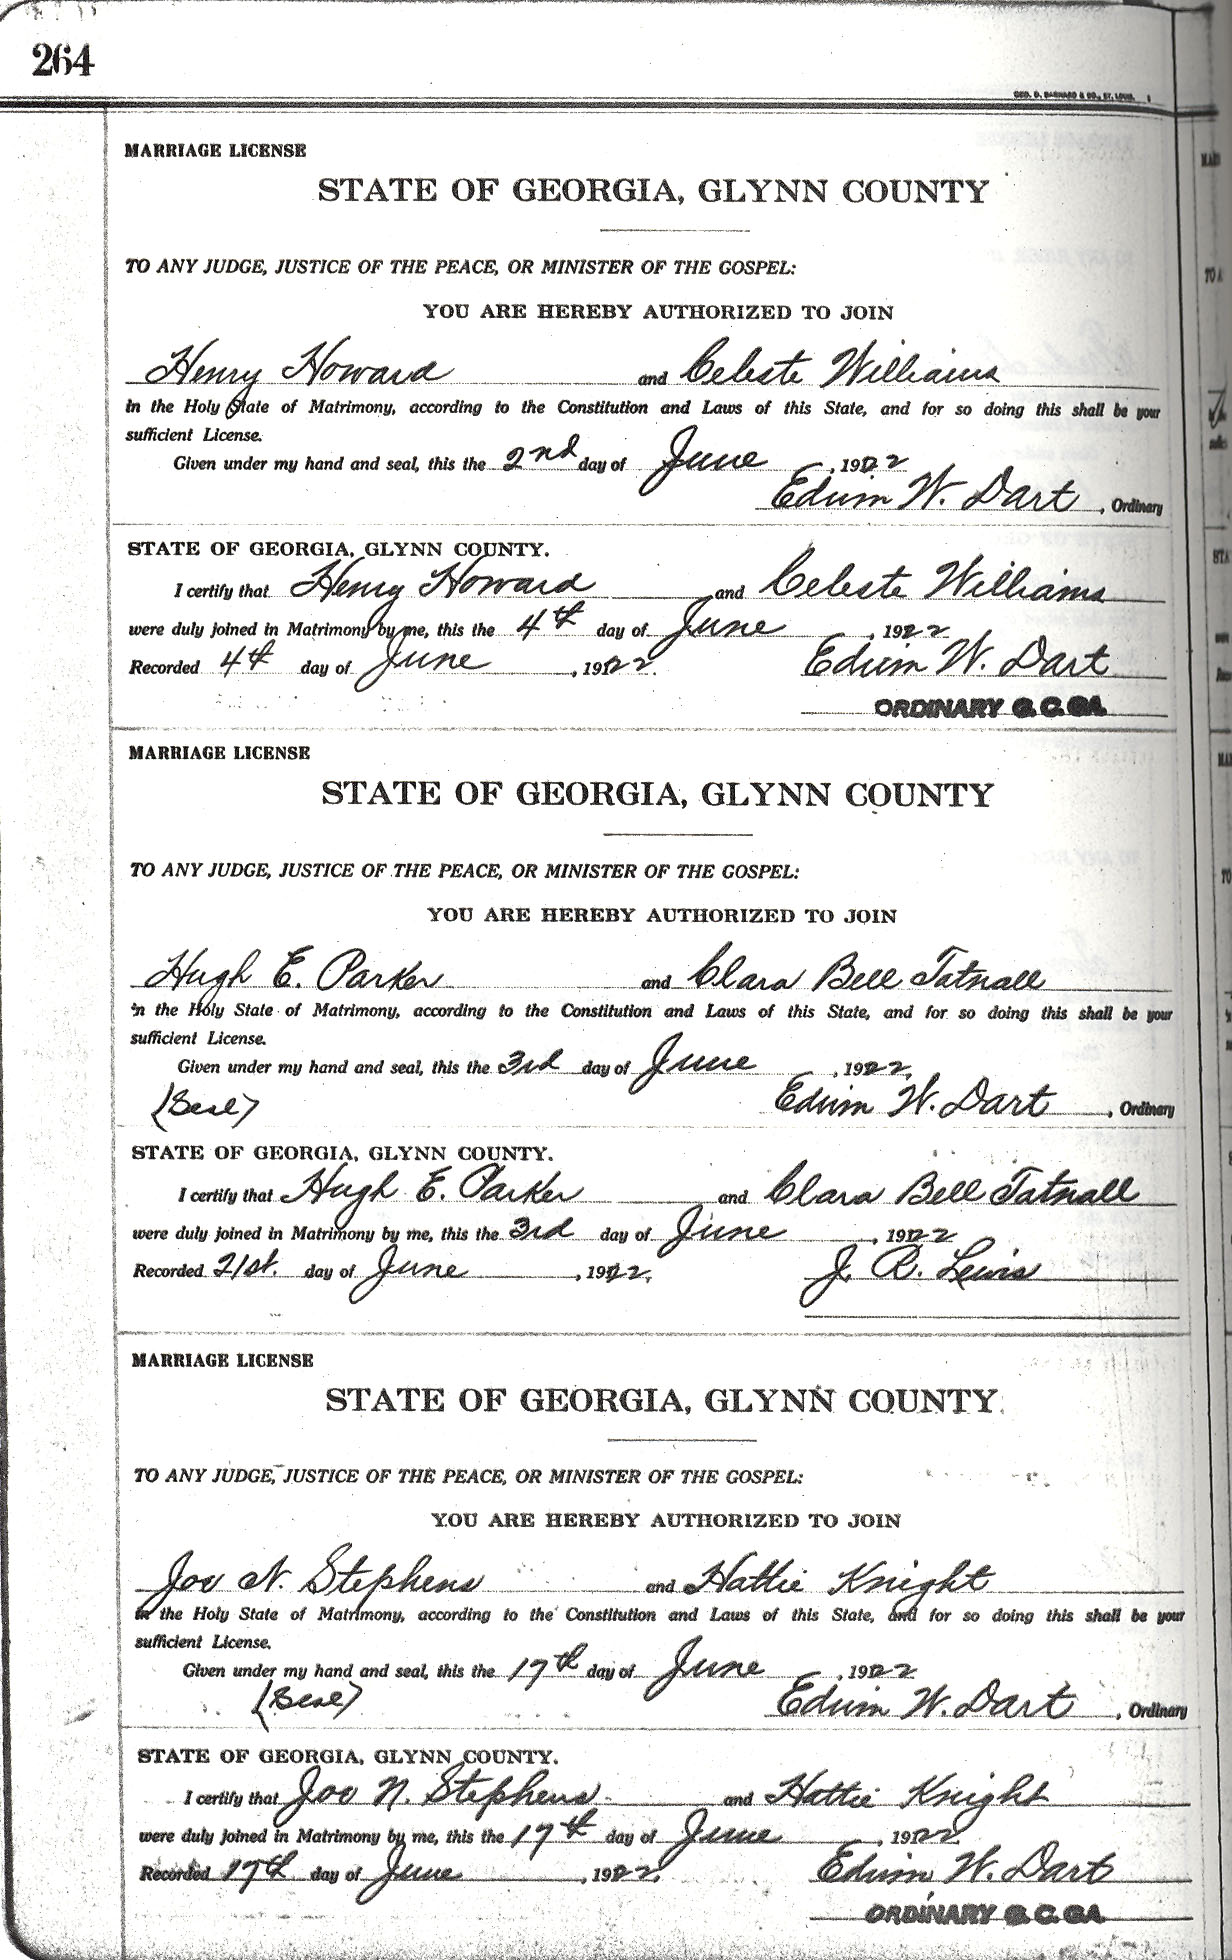 264
GEO. D. BARNARD & CO., ST. LOUIS.
MARRIAGE LICENSE
STATE OF GEORGIA, GLYNN COUNTY
TO ANY JUDGE, JUSTICE OF THE PEACE, OR MINISTER OF THE GOSPEL:
YOU ARE HEREBY AUTHORIZED TO JOIN
Henry Howard and Celeste Williams
in the Holy State of Matrimony, according to the Constitution and Laws of this State, and for so doing this shall be your
sufficient License.
Given under my hand and seal, this the 2nd day of June, 1922
Edwin W. Dart, Ordinary
STATE OF GEORGIA, GLYNN COUNTY.
I certify that Henry Howard and Celeste Williams
were duly joined in Matrimony by me, this the 4th day of June, 1922
Recorded 4th day of June, 1922. Edwin W. Dart
ORDINARY G. C. GA.
MARRIAGE LICENSE
STATE OF GEORGIA, GLYNN COUNTY
TO ANY JUDGE, JUSTICE OF THE PEACE, OR MINISTER OF THE GOSPEL:
YOU ARE HEREBY AUTHORIZED TO JOIN
Hugh E. Parker and Clara Bell Tatnall
in the Holy State of Matrimony, according to the Constitution and Laws of this State, and for so doing this shall be your
sufficient License.
Given under my hand and seal, this the 3rd day of June, 1922,
(Seal) Edwin W. Dart, Ordinary
STATE OF GEORGIA, GLYNN COUNTY.
I certify that Hugh E. Parker and Clara Bell Tatnall
were duly joined in Matrimony by me, this the 3rd day of June, 1922
Recorded 21st. day of June, 1922. J. R. Lewis
MARRIAGE LICENSE
STATE OF GEORGIA, GLYNN COUNTY
TO ANY JUDGE, JUSTICE OF THE PEACE, OR MINISTER OF THE GOSPEL:
YOU ARE HEREBY AUTHORIZED TO JOIN
Joe N. Stephens and Hattie Knight
in the Holy State of Matrimony, according to the Constitution and Laws of this State, and for so doing this shall be your
sufficient License.
Given under my hand and seal, this the 17th day of June, 1922
(Seal) Edwin W. Dart, Ordinary
STATE OF GEORGIA, GLYNN COUNTY.
I certify that Joe N. Stephens and Hattie Knight
were duly joined in Matrimony by me, this the 17th day of June, 1922
Recorded 17th day of June, 1922. Edwin W. Dart
ORDINARY G. C. GA.